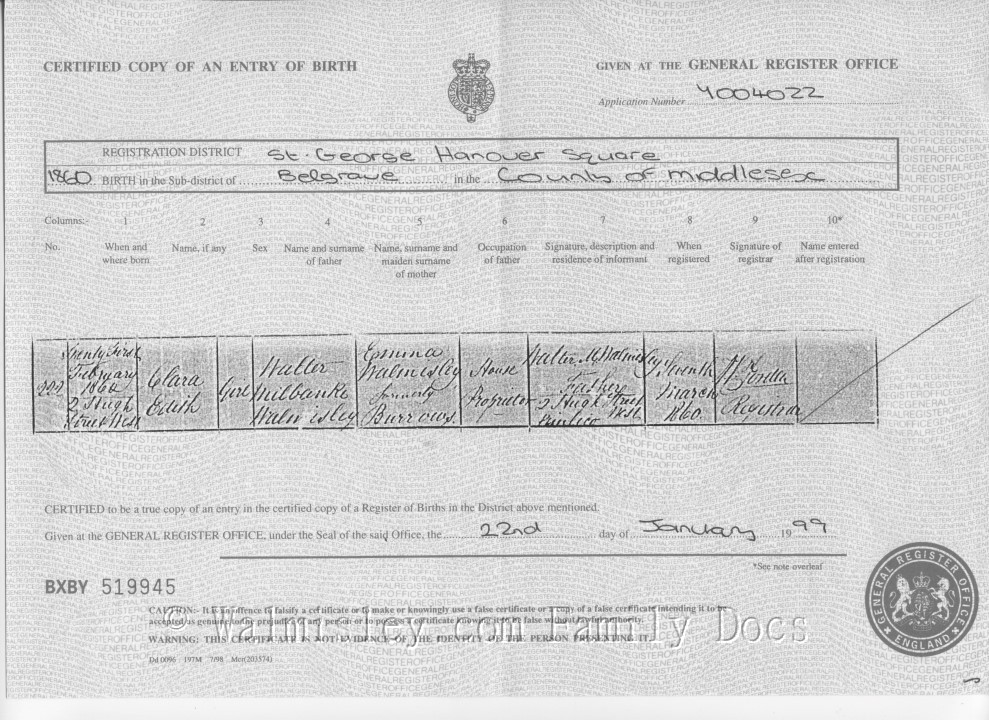 CERTIFIED COPY OF AN ENTRY OF BIRTH
GIVEN AT THE GENERAL REGISTER OFFICE
Application Number Y004022
REGISTRATION DISTRICT St. George Hanover Square
1860 BIRTH in the Sub-district of Belgrave in the County of Middlesex
Columns:- 1 2 3 4 5 6 7 8 9 10*
No. When and where born Name, if any Sex Name and surname of father Name, surname and maiden surname of mother Occupation of father Signature, description and residence of informant When registered Signature of registrar Name entered after registration
Twenty First
February
1860
2 Hugh
Street West
Clara
Edith
Girl
Walter
Milbanke
Walmisley
Emma
Walmisley
formerly
Burrows
House
Proprietor
Walter M Walmisley
Father
2 Hugh Street
West
Pimlico
March
1860
Registrar
CERTIFIED to be a true copy of an entry in the certified copy of a Register of Births in the District above mentioned.
Given at the GENERAL REGISTER OFFICE, under the Seal of the said Office, the 22nd day of January 1999
*See note overleaf
BXBY 519945
CAUTION:- It is an offence to falsify a certificate or to make or knowingly use a false certificate or a copy of a false certificate intending it to be
accepted as genuine to the prejudice of any person or to possess a certificate knowing it to be false without lawful authority.
WARNING: THIS CERTIFICATE IS NOT EVIDENCE OF THE IDENTITY OF THE PERSON PRESENTING IT.
© Walmisley.com Family Docs
Dd 0096 197M 7/98 Mcr(203574)
GENERAL REGISTER OFFICE
ENGLAND